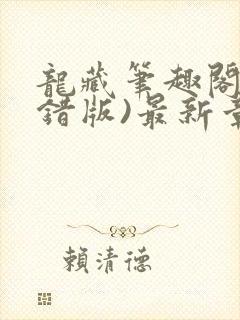 龍藏筆趣閣
錯版)最新章
賴清德